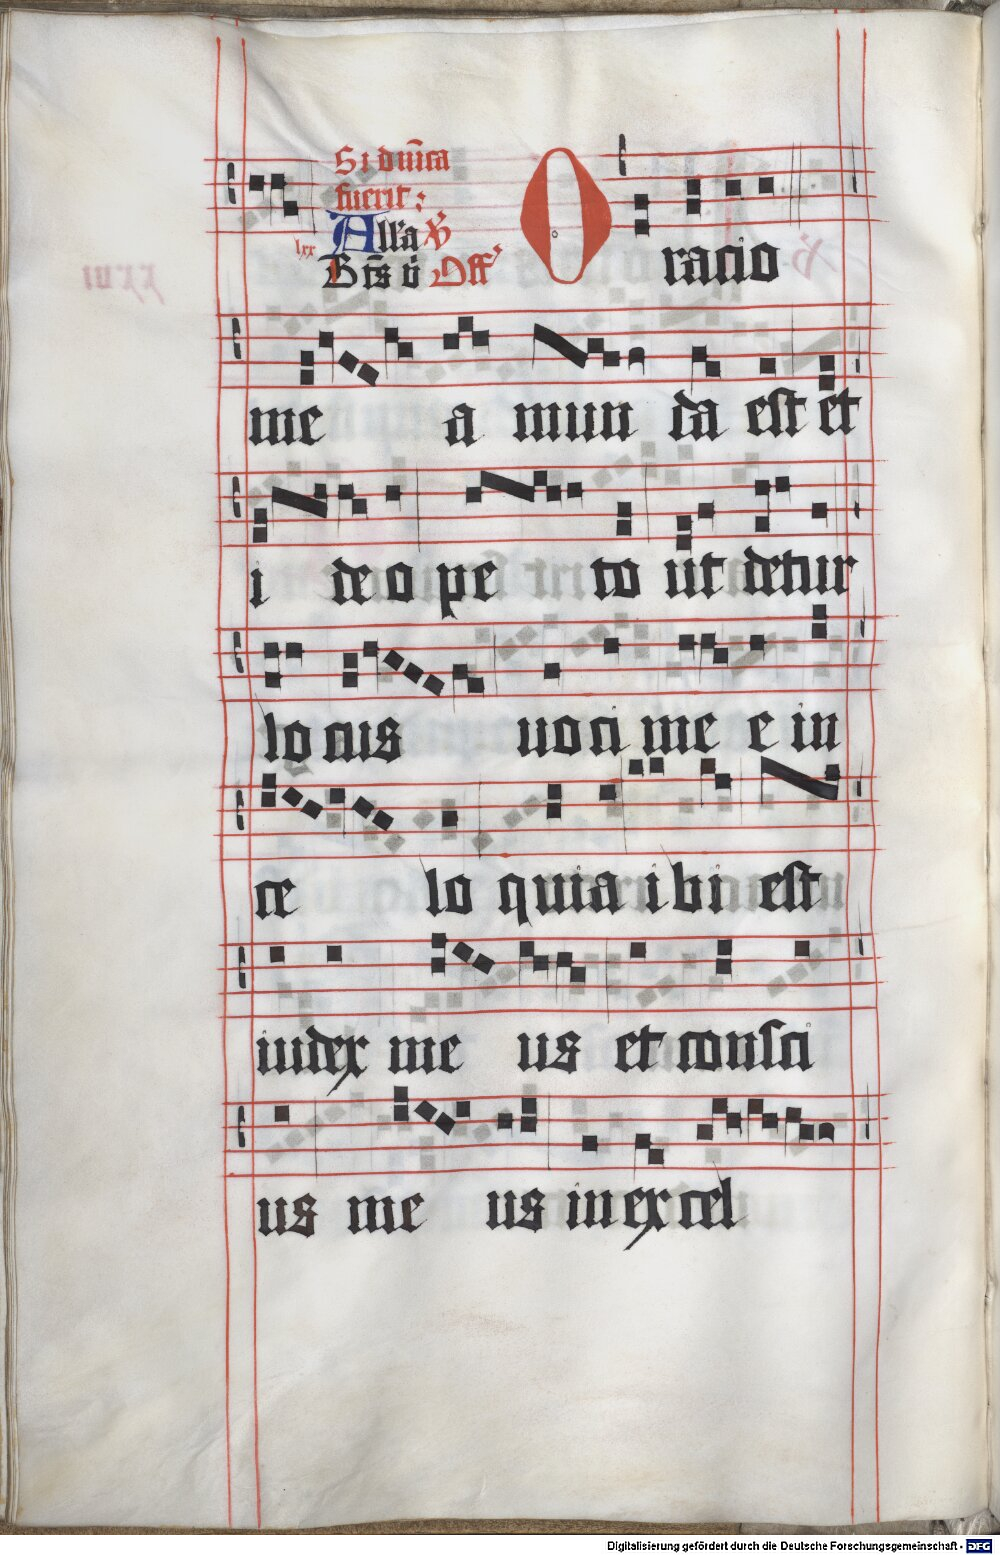 Si dnīca
fuerit:
Alla ℣
lxx
Btūs ů Off
Oracio
me a mun da est et
i deo pe to ut detur
lo cus uoci me e in
ce lo quia ibi est
iudex me us et consci
us me us in excel
Digitalisierung gefördert durch die Deutsche Forschungsgemeinschaft - DFG